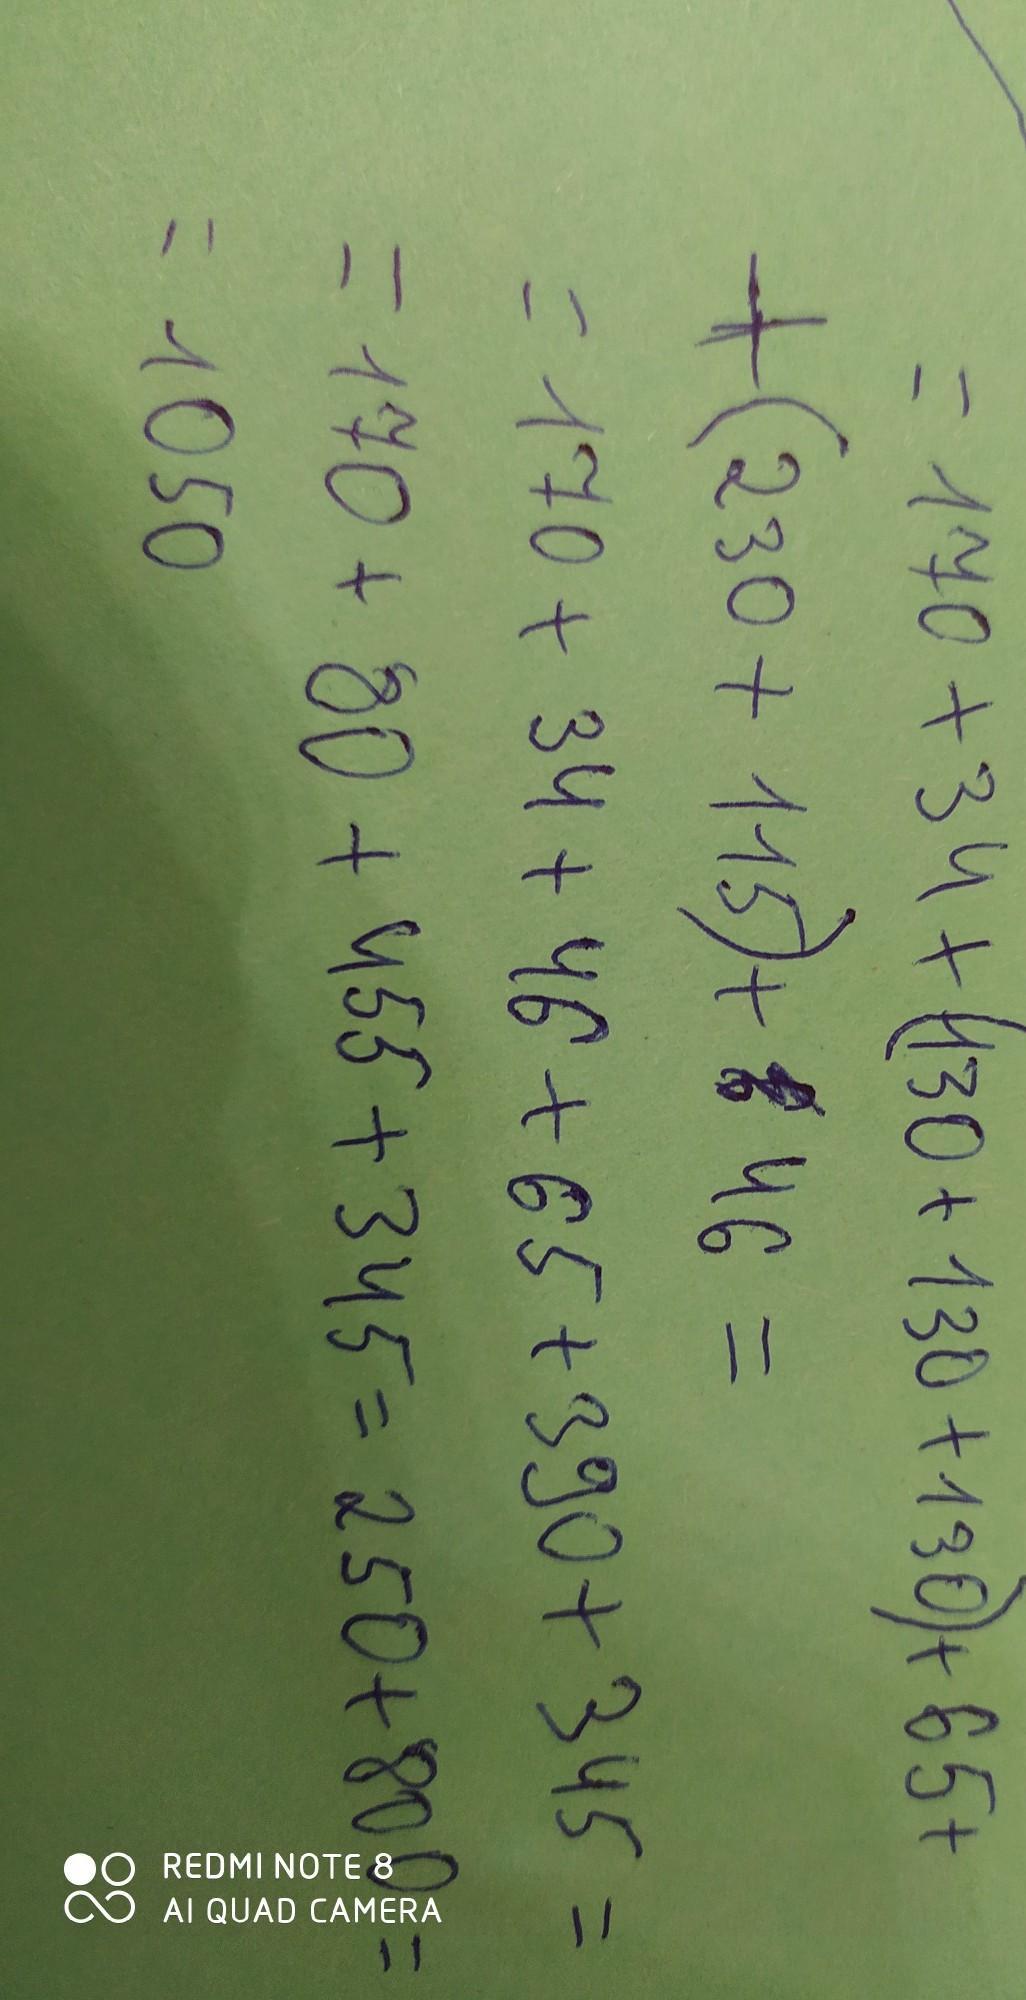 = 170 + 34 + (130 + 130 + 130) + 65 +
+ (230 + 115) + 46 =
= 170 + 34 + 46 + 65 + 390 + 345 =
= 170 + 80 + 455 + 345 = 250 + 800 =
= 1050
REDMI NOTE 8
AI QUAD CAMERA